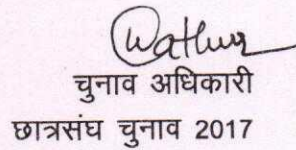 चुनाव अधिकारी
छात्रसंघ चुनाव 2017